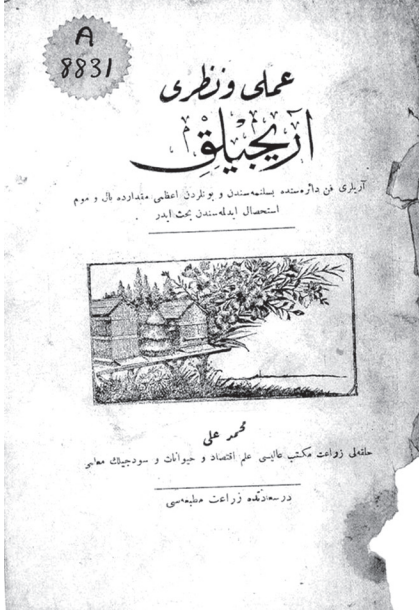 A
8831
عملی و نظری
آریجیلق
آریلری فن دائره‌سنده بسلنمه‌سندن و بونلردن اعظمی مقدارده بال و موم
استحصال ایدلمه‌سندن بحث ایدر
محمد علی
حلقه‌لی زراعت مکتب عالیسی علم اقتصاد و حیوانات و سودجیلك معلمی
درسعادتده زراعت مطبعه‌سی